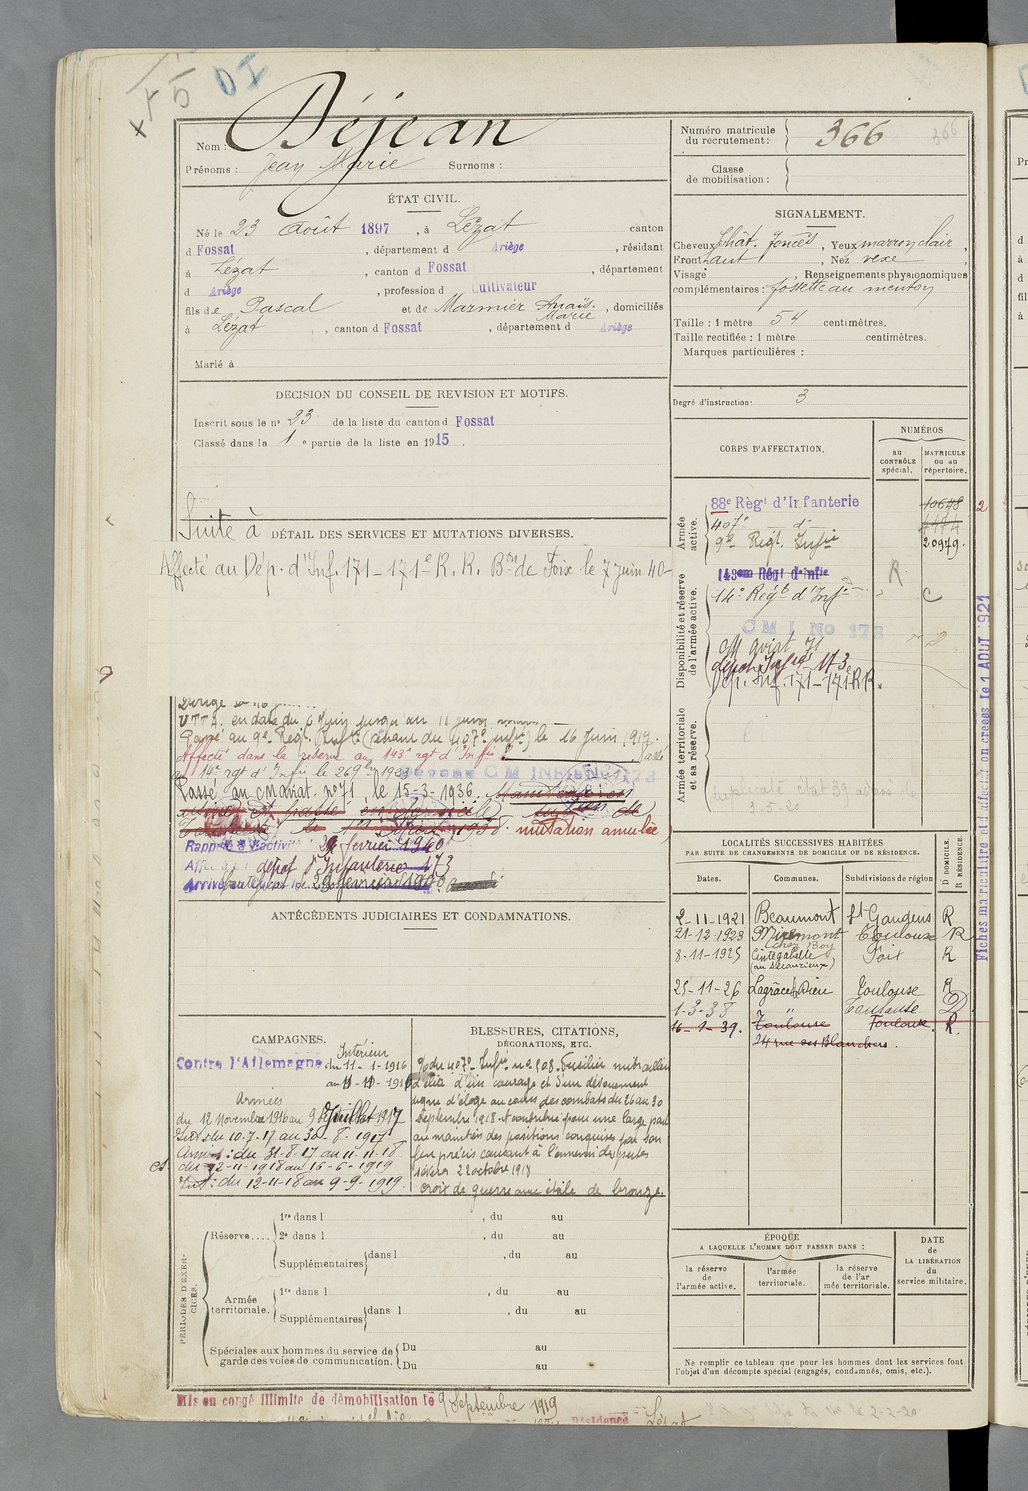 + 5 DI
Nom : Déjean
Prénoms : Jean Marie Surnoms :
Numéro matricule du recrutement : 366 366
Classe de mobilisation :
ÉTAT CIVIL.
Né le 23 Août 1897, à Lézat canton
d Fossat, département d Ariège, résidant
à Lézat, canton d Fossat, département
d Ariège, profession d Cultivateur
fils de Pascal et de Marmier Anaïs Marie, domiciliés
à Lézat, canton d Fossat, département d Ariège
Marié à
SIGNALEMENT.
Cheveux chât. foncés, Yeux marron clair,
Front haut, Nez vexe,
Visage , Renseignements physionomiques
complémentaires : fossette au menton
Taille : 1 mètre 54 centimètres.
Taille rectifiée : 1 mètre centimètres.
Marques particulières :
Degré d'instruction : 3
DECISION DU CONSEIL DE REVISION ET MOTIFS.
Inscrit sous le n° 23 de la liste du canton d Fossat
Classé dans la 1e partie de la liste en 1915.
CORPS D'AFFECTATION.
NUMÉROS
au CONTRÔLE spécial.
MATRICULE OU AU répertoire.
Armée active.
88e Régt d'Infanterie 10698
407e d°
9e Régt. Infie 20979.
Disponibilité et réserve de l'armée active.
143em Régt d'Infie R
14e Régt d'Infie C
C M I No 173
CM ariat 71
dépôt Infie 173
Dép. Inf. 171-171 RR.
Armée territoriale et sa réserve.
Suite à DÉTAIL DES SERVICES ET MUTATIONS DIVERSES.
Affecté au Dép. d'Inf. 171-171e R. R. Bon de Foix le 7 juin 40-
en date du 6 Juin jusqu'au 11 juin
Passé au 9e Régt. Infie (venant du 407e Infie) le 16 Juin 1919.
Affecté dans la réserve au 143e rgt d'Infie Passé
au 14e rgt d'Infie le
Passé au CM ariat. n° 71 le 15-3-1936.
mutation annulée
Rappelé à l'activité 29 février 1940
dépôt d'Infanterie 173
ANTÉCÉDENTS JUDICIAIRES ET CONDAMNATIONS.
LOCALITÉS SUCCESSIVES HABITÉES
PAR SUITE DE CHANGEMENTS DE DOMICILE OU DE RÉSIDENCE.
Dates. Communes. Subdivisions de région D DOMICILE. R RÉSIDENCE.
2-11-1921 Beaumont St Gaudens R
21-12-1923 Miremont Toulouse R
chez Boy
8-11-1925 Cintegabelle Foix R
25-11-26 Lagrâce Dieu Toulouse R
1-3-38 " Toulouse D
16-1-39. Toulouse Toulouse. R.
24 rue des Blanchers.
Fiches matriculaire et d'affectation créées le 1 AOUT 1921
CAMPAGNES.
Contre l'Allemagne
Intérieur
du 11-1-1916
au 11-11-1916
Armées
du 12 Novembre 1916 au 9 Juillet 1917
Int: du 10-7-17 au 30-8-1917
Armées: du 31-8-17 au 11-11-18
et du 12-11-1918 au 16-6-1919
Int: du 12-11-18 au 9-9-1919.
BLESSURES, CITATIONS, DÉCORATIONS, ETC.
O/du 407e Infie n° 508. Fusilier mitrailleur
d'élite d'un courage et d'un dévouement
digne d'éloge au cours des combats du 26 au 30
Septembre 1918. A contribué pour une large part
au maintien des positions conquises par son
feu précis causant à l'ennemi des pertes
sévères 22 octobre 1918
Croix de guerre avec étoile de bronze.
PÉRIODES D'EXERCICES.
Réserve....
1re dans l , du au
2e dans l , du au
Supplémentaires dans l , du au
Armée territoriale.
1re dans l , du au
Supplémentaires dans l , du au
Spéciales aux hommes du service de garde des voies de communication.
Du au
Du au
ÉPOQUE
A LAQUELLE L'HOMME DOIT PASSER DANS :
la réserve de l'armée active.
l'armée territoriale.
la réserve de l'armée territoriale.
DATE de LA LIBÉRATION du service militaire.
Ne remplir ce tableau que pour les hommes dont les services font l'objet d'un décompte spécial (engagés, condamnés, omis, etc.).
Mis en congé illimité de démobilisation le 9 Septembre 1919
Résidence Lézat